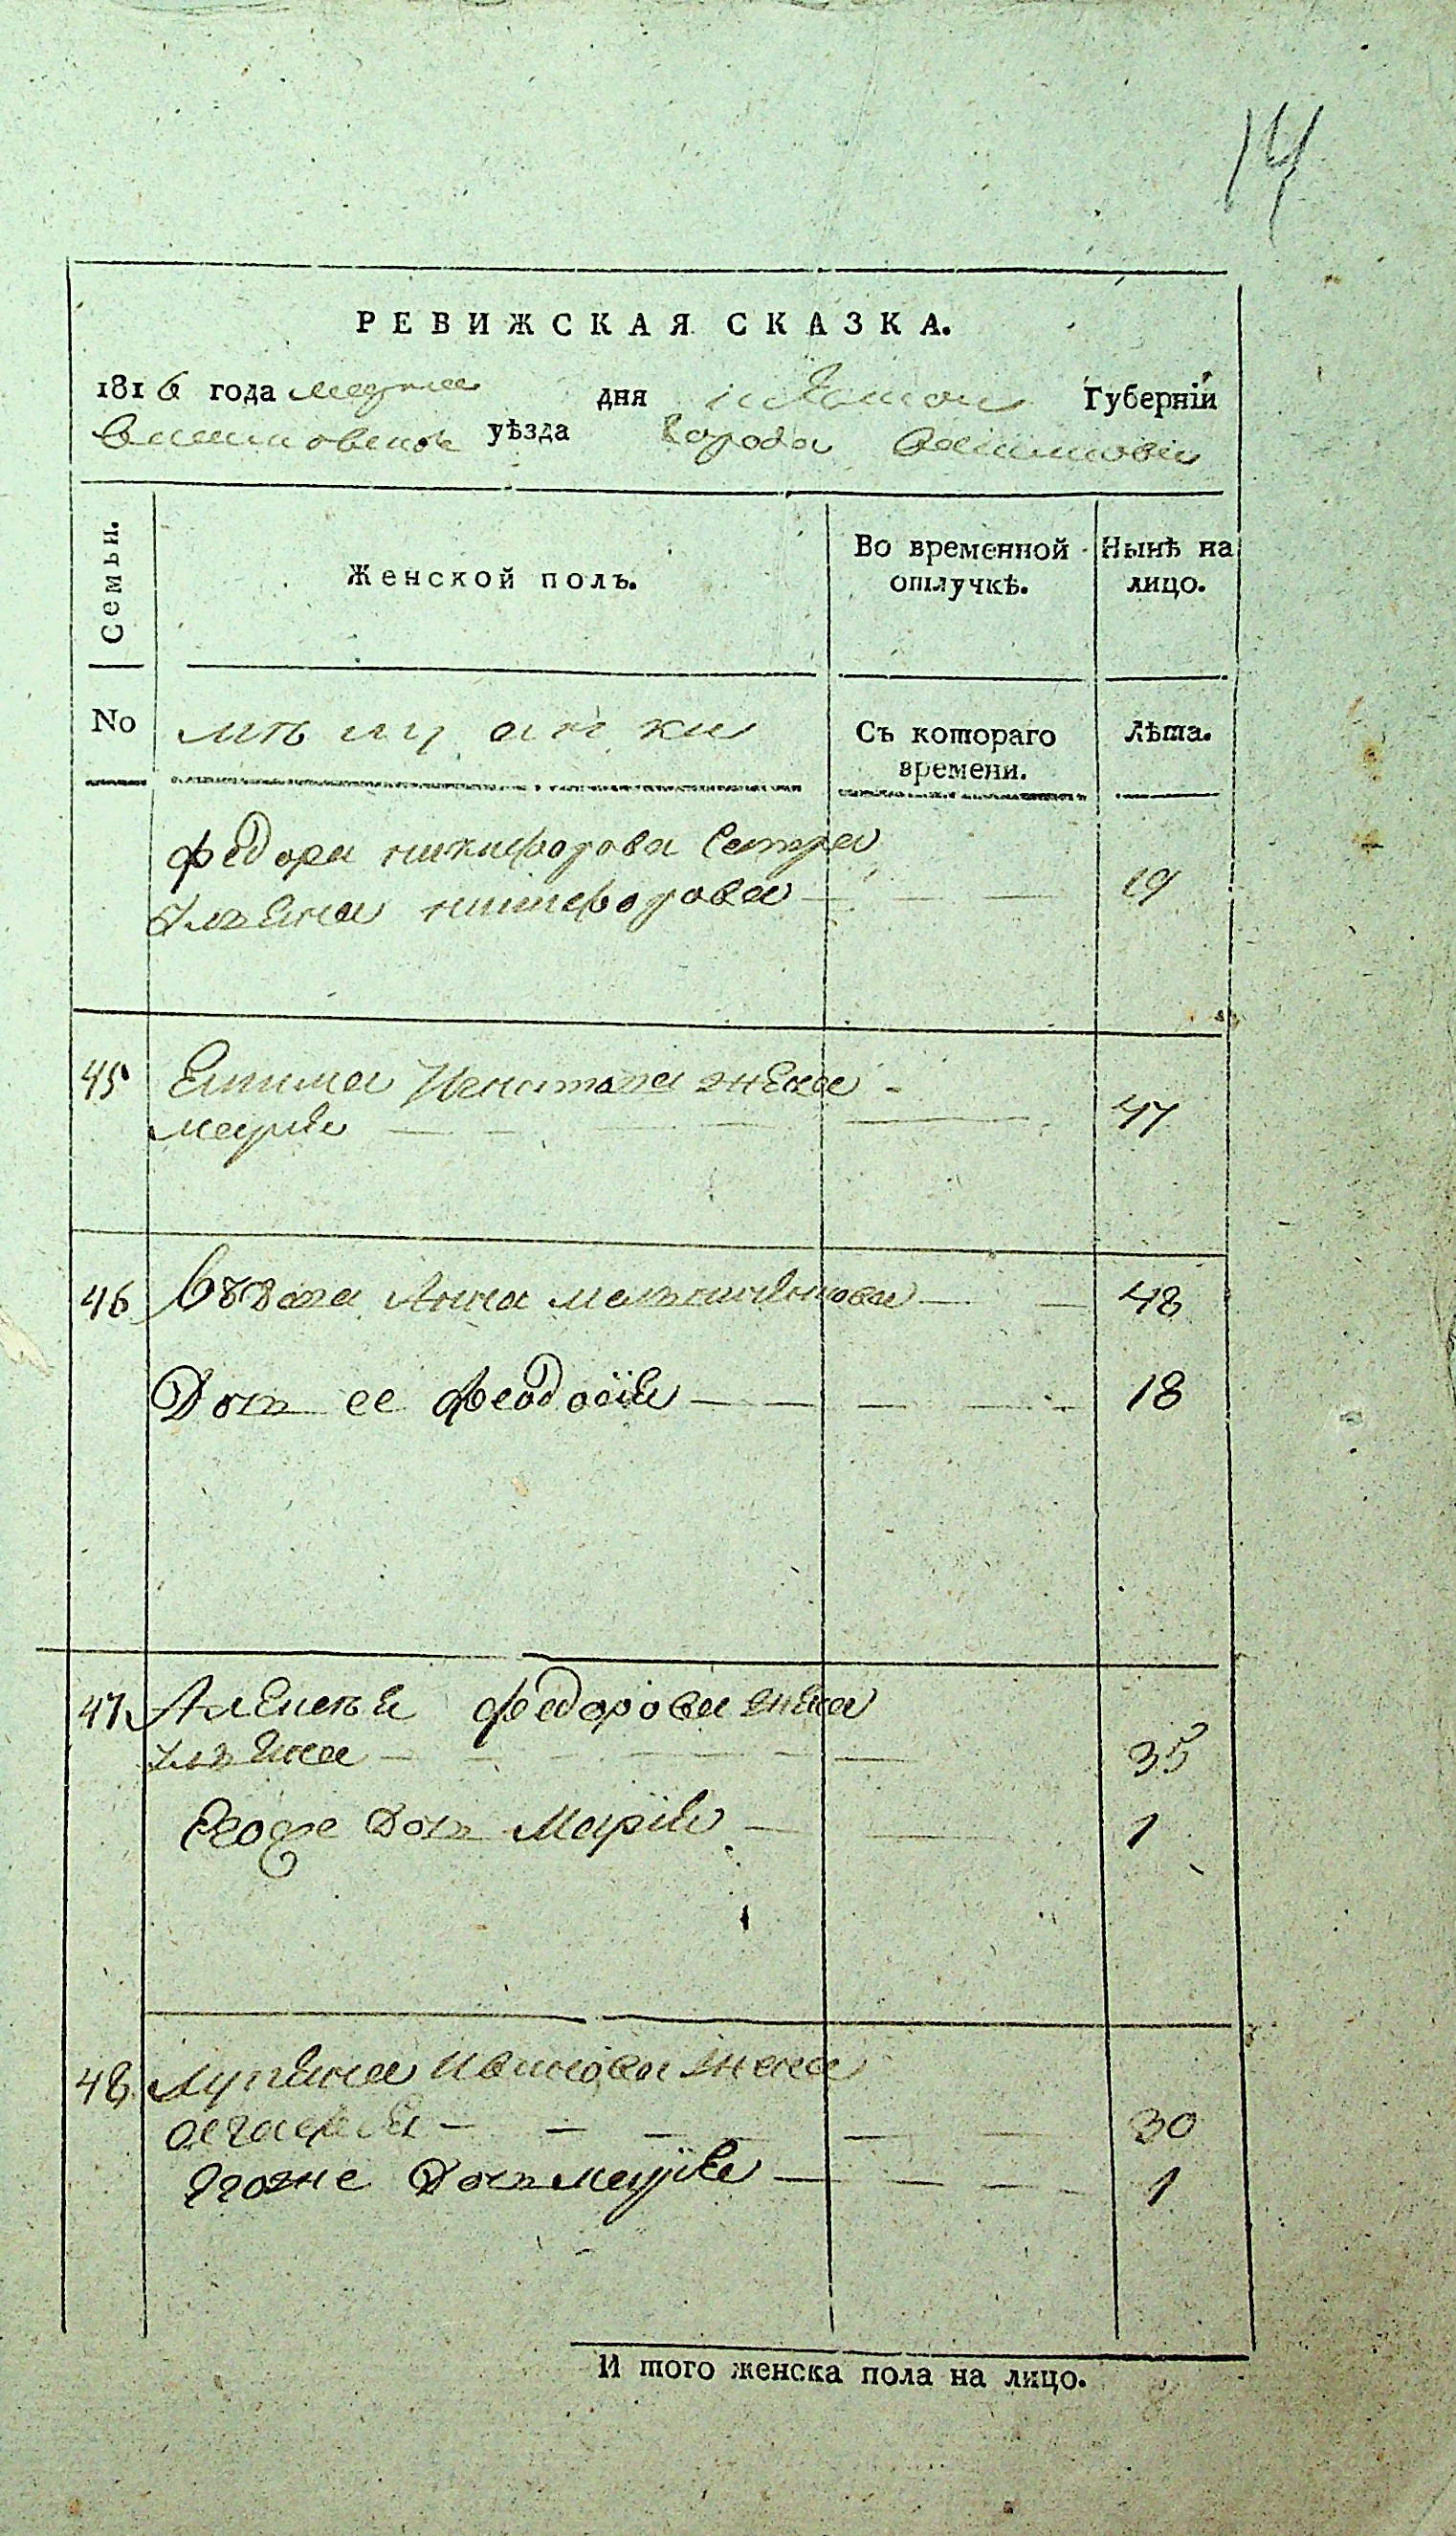 14
РЕВИЖСКАЯ СКАЗКА.
1816 года марта дня Губерніи
уѣзда города
Семьи.
Женской полъ.
Во временной отлучкѣ.
Нынѣ на лицо.
No
мѣщанки
Съ котораго времени.
Лѣта.
Федора никифорова сестра
никифорова 19
45 жена
марья 47
46 Вдова Анна 48
Дочь ее Феодосія 18
47 Алексѣя федорова жена
35
Егоже дочь Марія 1
48 Иванова жена
агафья 30
Егоже дочь марія 1
И того женска пола на лицо.